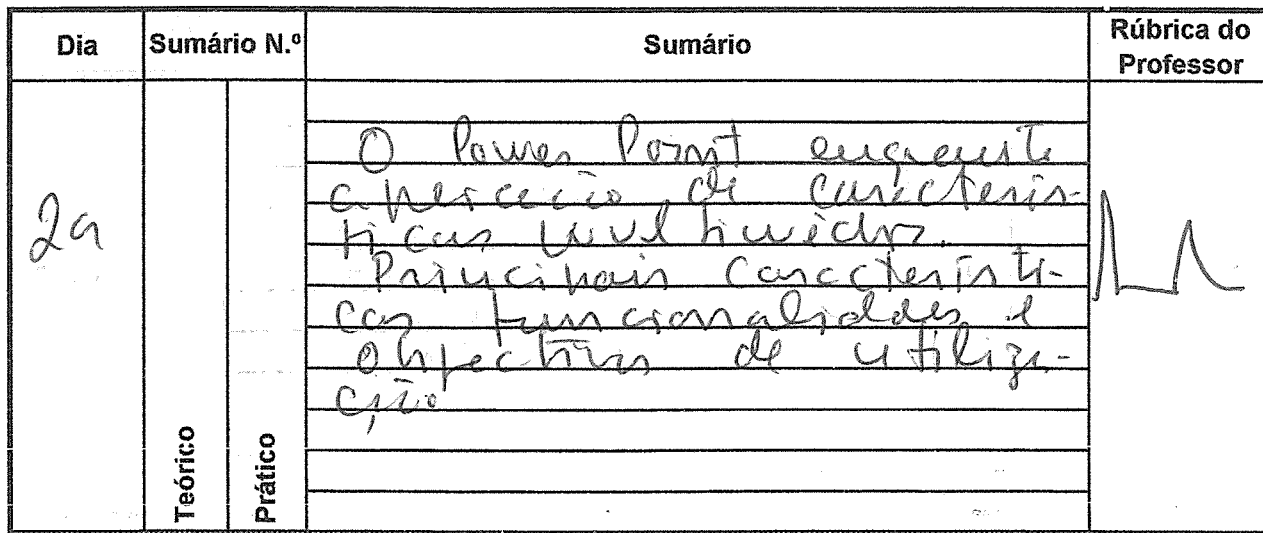 Dia Sumário N.º Sumário Rúbrica do Professor
Teórico Prático
O Power Point enquanto
de caracterís-
ticas multimédia.
Principais Caracterís ti-
cas funcionalidades e
Objectivos de utiliza-
ção